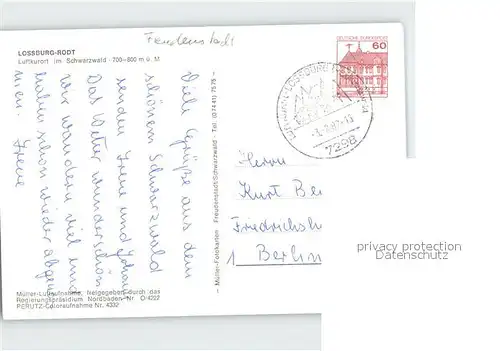 Freudenstadt
LOSSBURG-RODT
Luftkurort im Schwarzwald · 700–800 m ü. M
Viele Grüße aus dem
schönem Schwarzwald
senden Irene und Johann
Das Wetter wunderschön
wir wandern viel und
haben schon wieder abgenom
men. Irene
Müller-Luftaufnahme, freigegeben durch das
Regierungspräsidium Nordbaden Nr. O/4222
PERUTZ-Coloraufnahme Nr. 4332
– Müller-Fotokarten Freudenstadt/Schwarzwald – Tel. (07441) 7575 –
DEUTSCHE BUNDESPOST
60
LOSSBURG
7298
Herrn
Kurt Be
Friedrichsh
1 Berlin
privacy protection
Datenschutz